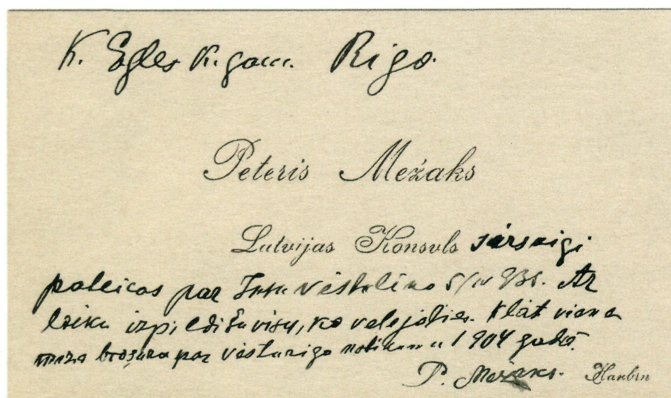 K. Egles K.gam. Rīgā.
Peteris Mežaks
Latvijas Konsuls sirsnīgi
pateicas par Jūsu vēstulīno 5/IV 935. Ar
laiku izpildīšu visu, ko vēlējāties. Klāt viena
maza brošūra par vēsturīgo notikumu 1904 gadā.
P. Mežaks. Harbin